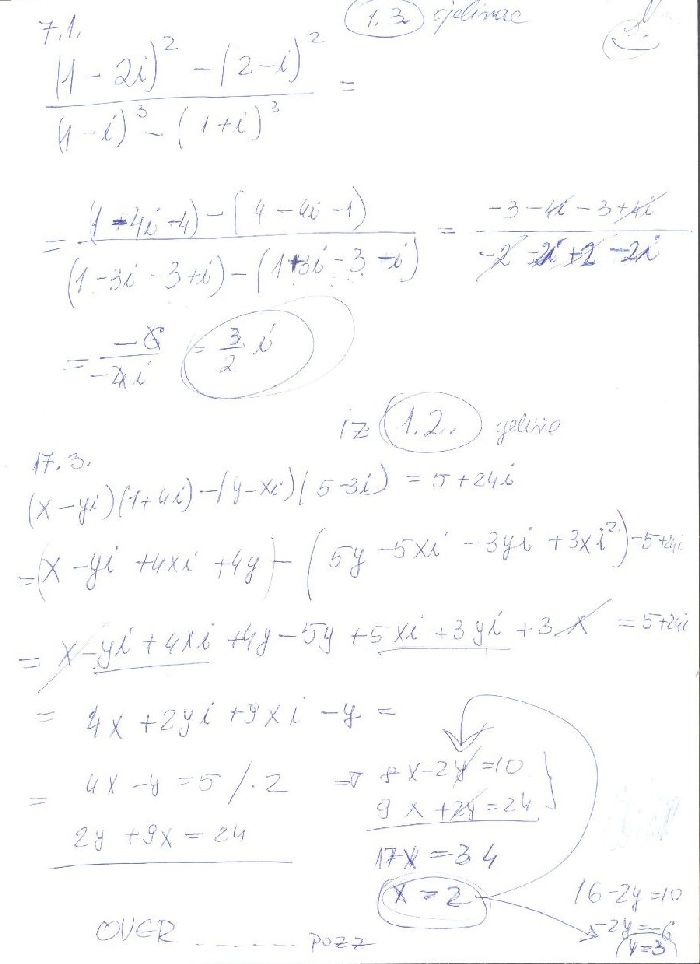 7.1.
1.3.
(1-2i)² - (2-i)²
(1-i)³ - (1+i)³
=
= (1-4i-4) - (4-4i-1)
(1-3i-3+i) - (1+3i-3-i)
= -3-4i-3+4i
-2-2i+2-2i
= -6
-4i
= 3
2 i
iz 1.2.
17.3.
(x-yi)(1+4i)-(y-xi)(5-3i) = 5+24i
= (x-yi+4xi+4y) - (5y-5xi-3yi+3xi²) - 5+24i
= x-yi+4xi+4y-5y+5xi+3yi+3x = 5+24i
= 4x+2yi+9xi-y =
= 4x-y=5 /·2 ⇒ 8x-2y=10
2y+9x=24
9x+2y=24
17x=34
x=2
16-2y=10
-2y=-6
y=3
OVER ....... pozz